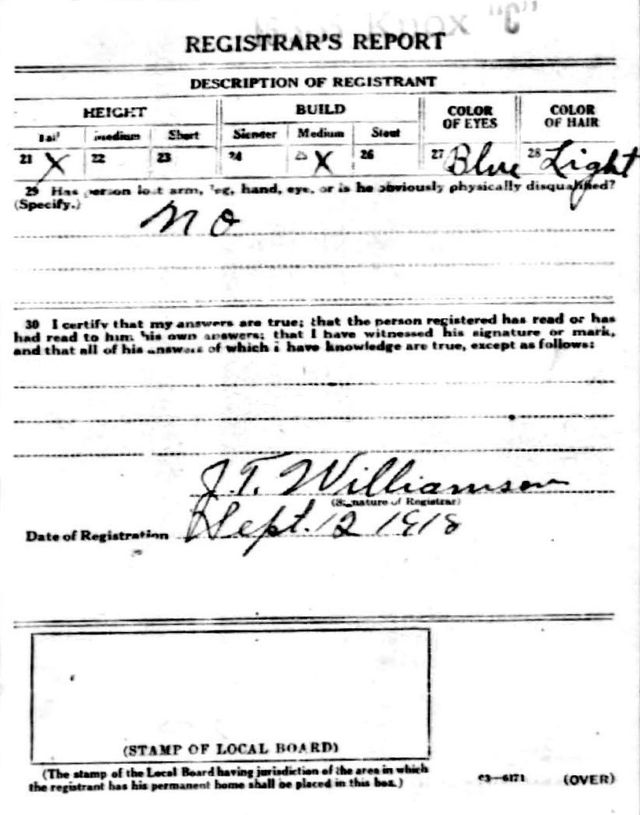 Knox "C"
REGISTRAR'S REPORT
DESCRIPTION OF REGISTRANT
HEIGHT BUILD COLOR OF EYES COLOR OF HAIR
Tall medium Short Slender Medium Stout
21 X 22 23 24 25 X 26 27 Blue 28 Light
29 Has person lost arm, leg, hand, eye, or is he obviously physically disqualified?
(Specify.) No
30 I certify that my answers are true; that the person registered has read or has
had read to him his own answers; that I have witnessed his signature or mark,
and that all of his answers of which I have knowledge are true, except as follows:
J. T. Williamson
(Signature of Registrar)
Date of Registration Sept. 12 1918
(STAMP OF LOCAL BOARD)
(The stamp of the Local Board having jurisdiction of the area in which
the registrant has his permanent home shall be placed in this box.)
03—6171 (OVER)